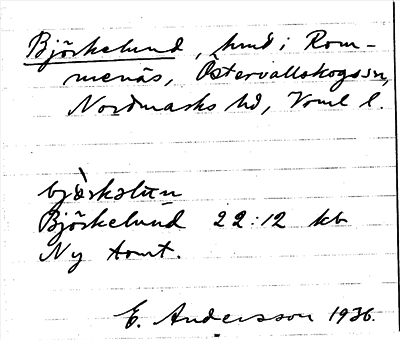 Björkelund, hmd i Rom-
menäs, Östervallskogs sn,
Nordmarks hd, Vrml l.
bjö̀rkəlun
Björkelund 22:12 kb
Ny tomt.
E. Andersson 1936.